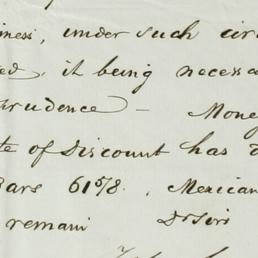 iness, under such cir
ed, it being necessa
rudence — Mone
te of Discount has
ars 61 5/8. Mexican
remain Dr Sirs